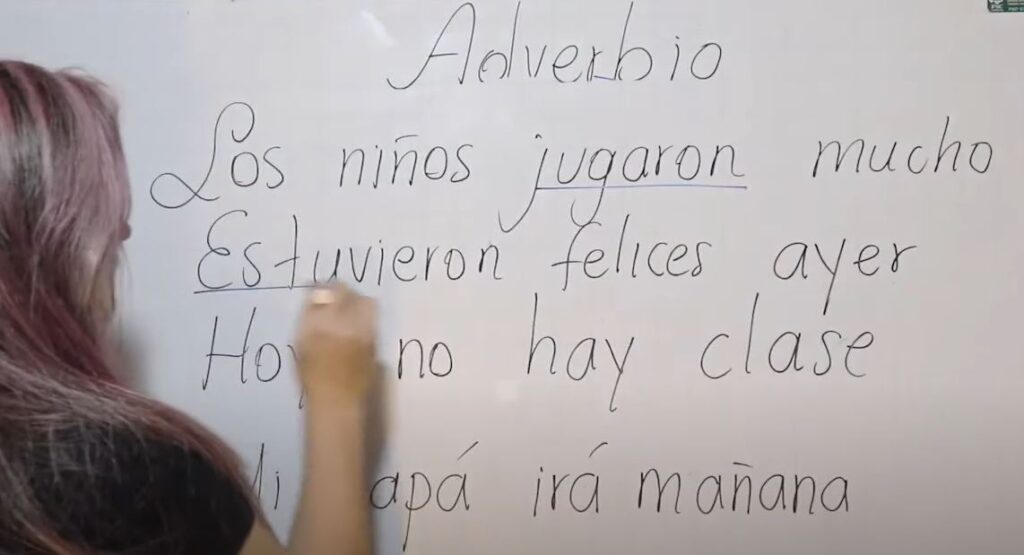 Adverbio
Los niños jugaron mucho
Estuvieron felices ayer
Hoy no hay clase
irá mañana